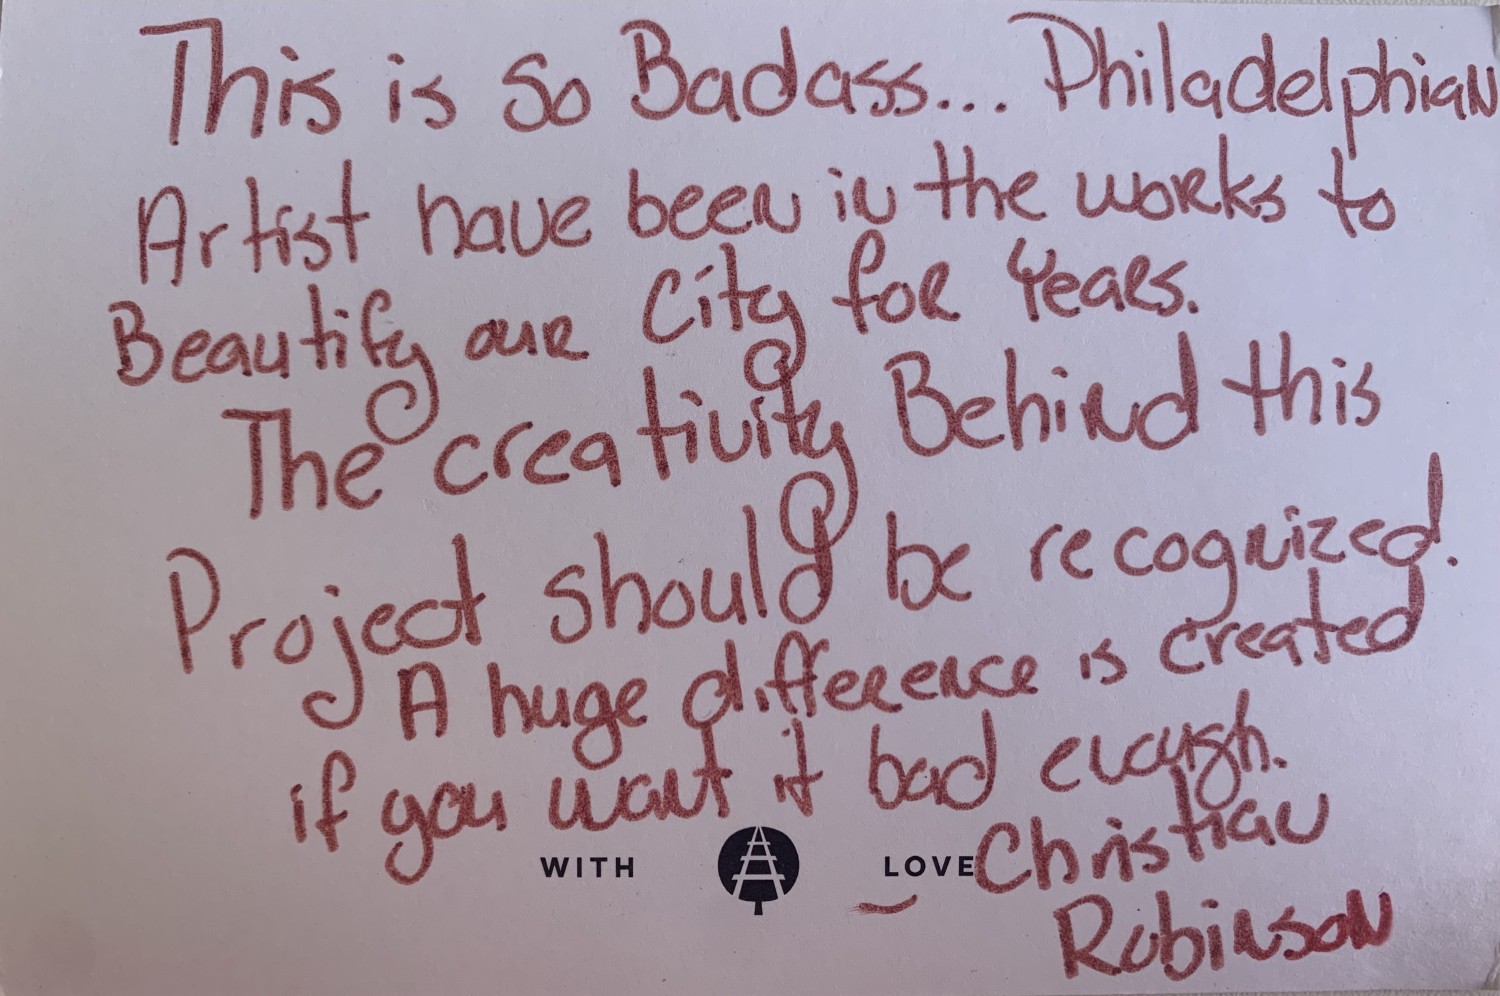 This is So Badass... Philadelphian
Artist have been in the works to
Beautify our City for Years.
The creativity Behind this
Project should be recognized.
A huge difference is created
if you want it bad enough.
WITH LOVE
- Christian
Robinson